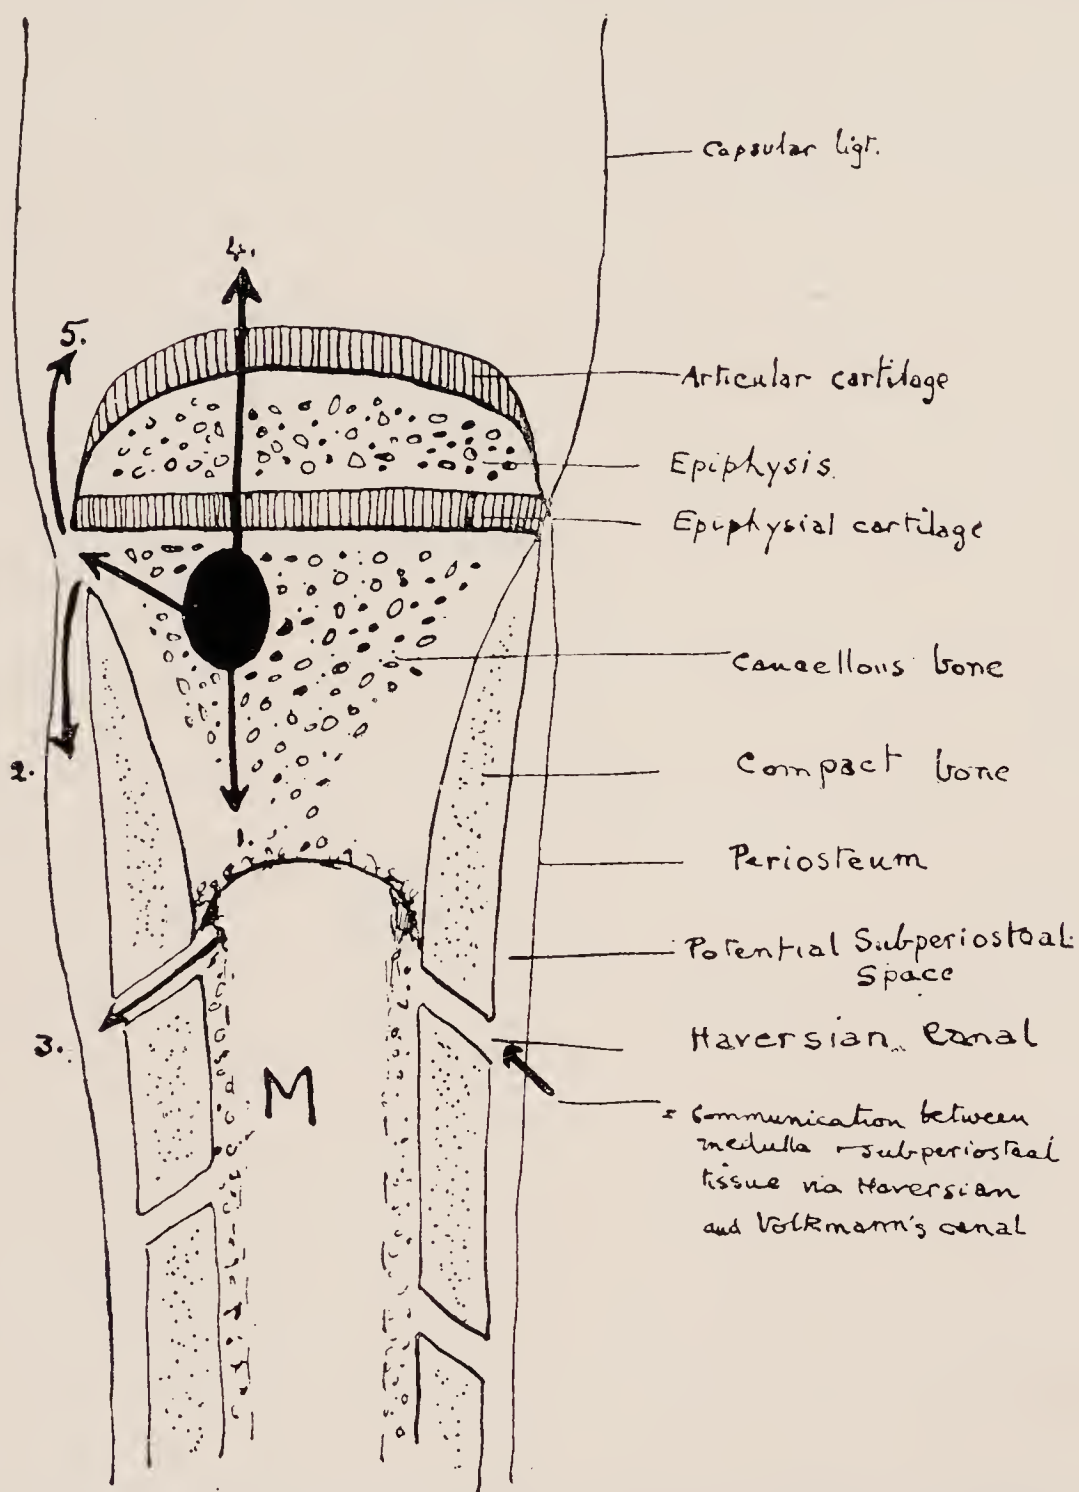 Capsular ligt.
4.
5.
Articular cartilage
Epiphysis.
Epiphysial cartilage
Cancellous bone
2.
Compact bone
1.
Periosteum
Potential Subperiosteal
Space
3.
Haversian Canal
M
= Communication between
medulla + subperiosteal
tissue via Haversian
and Volkmann's canal